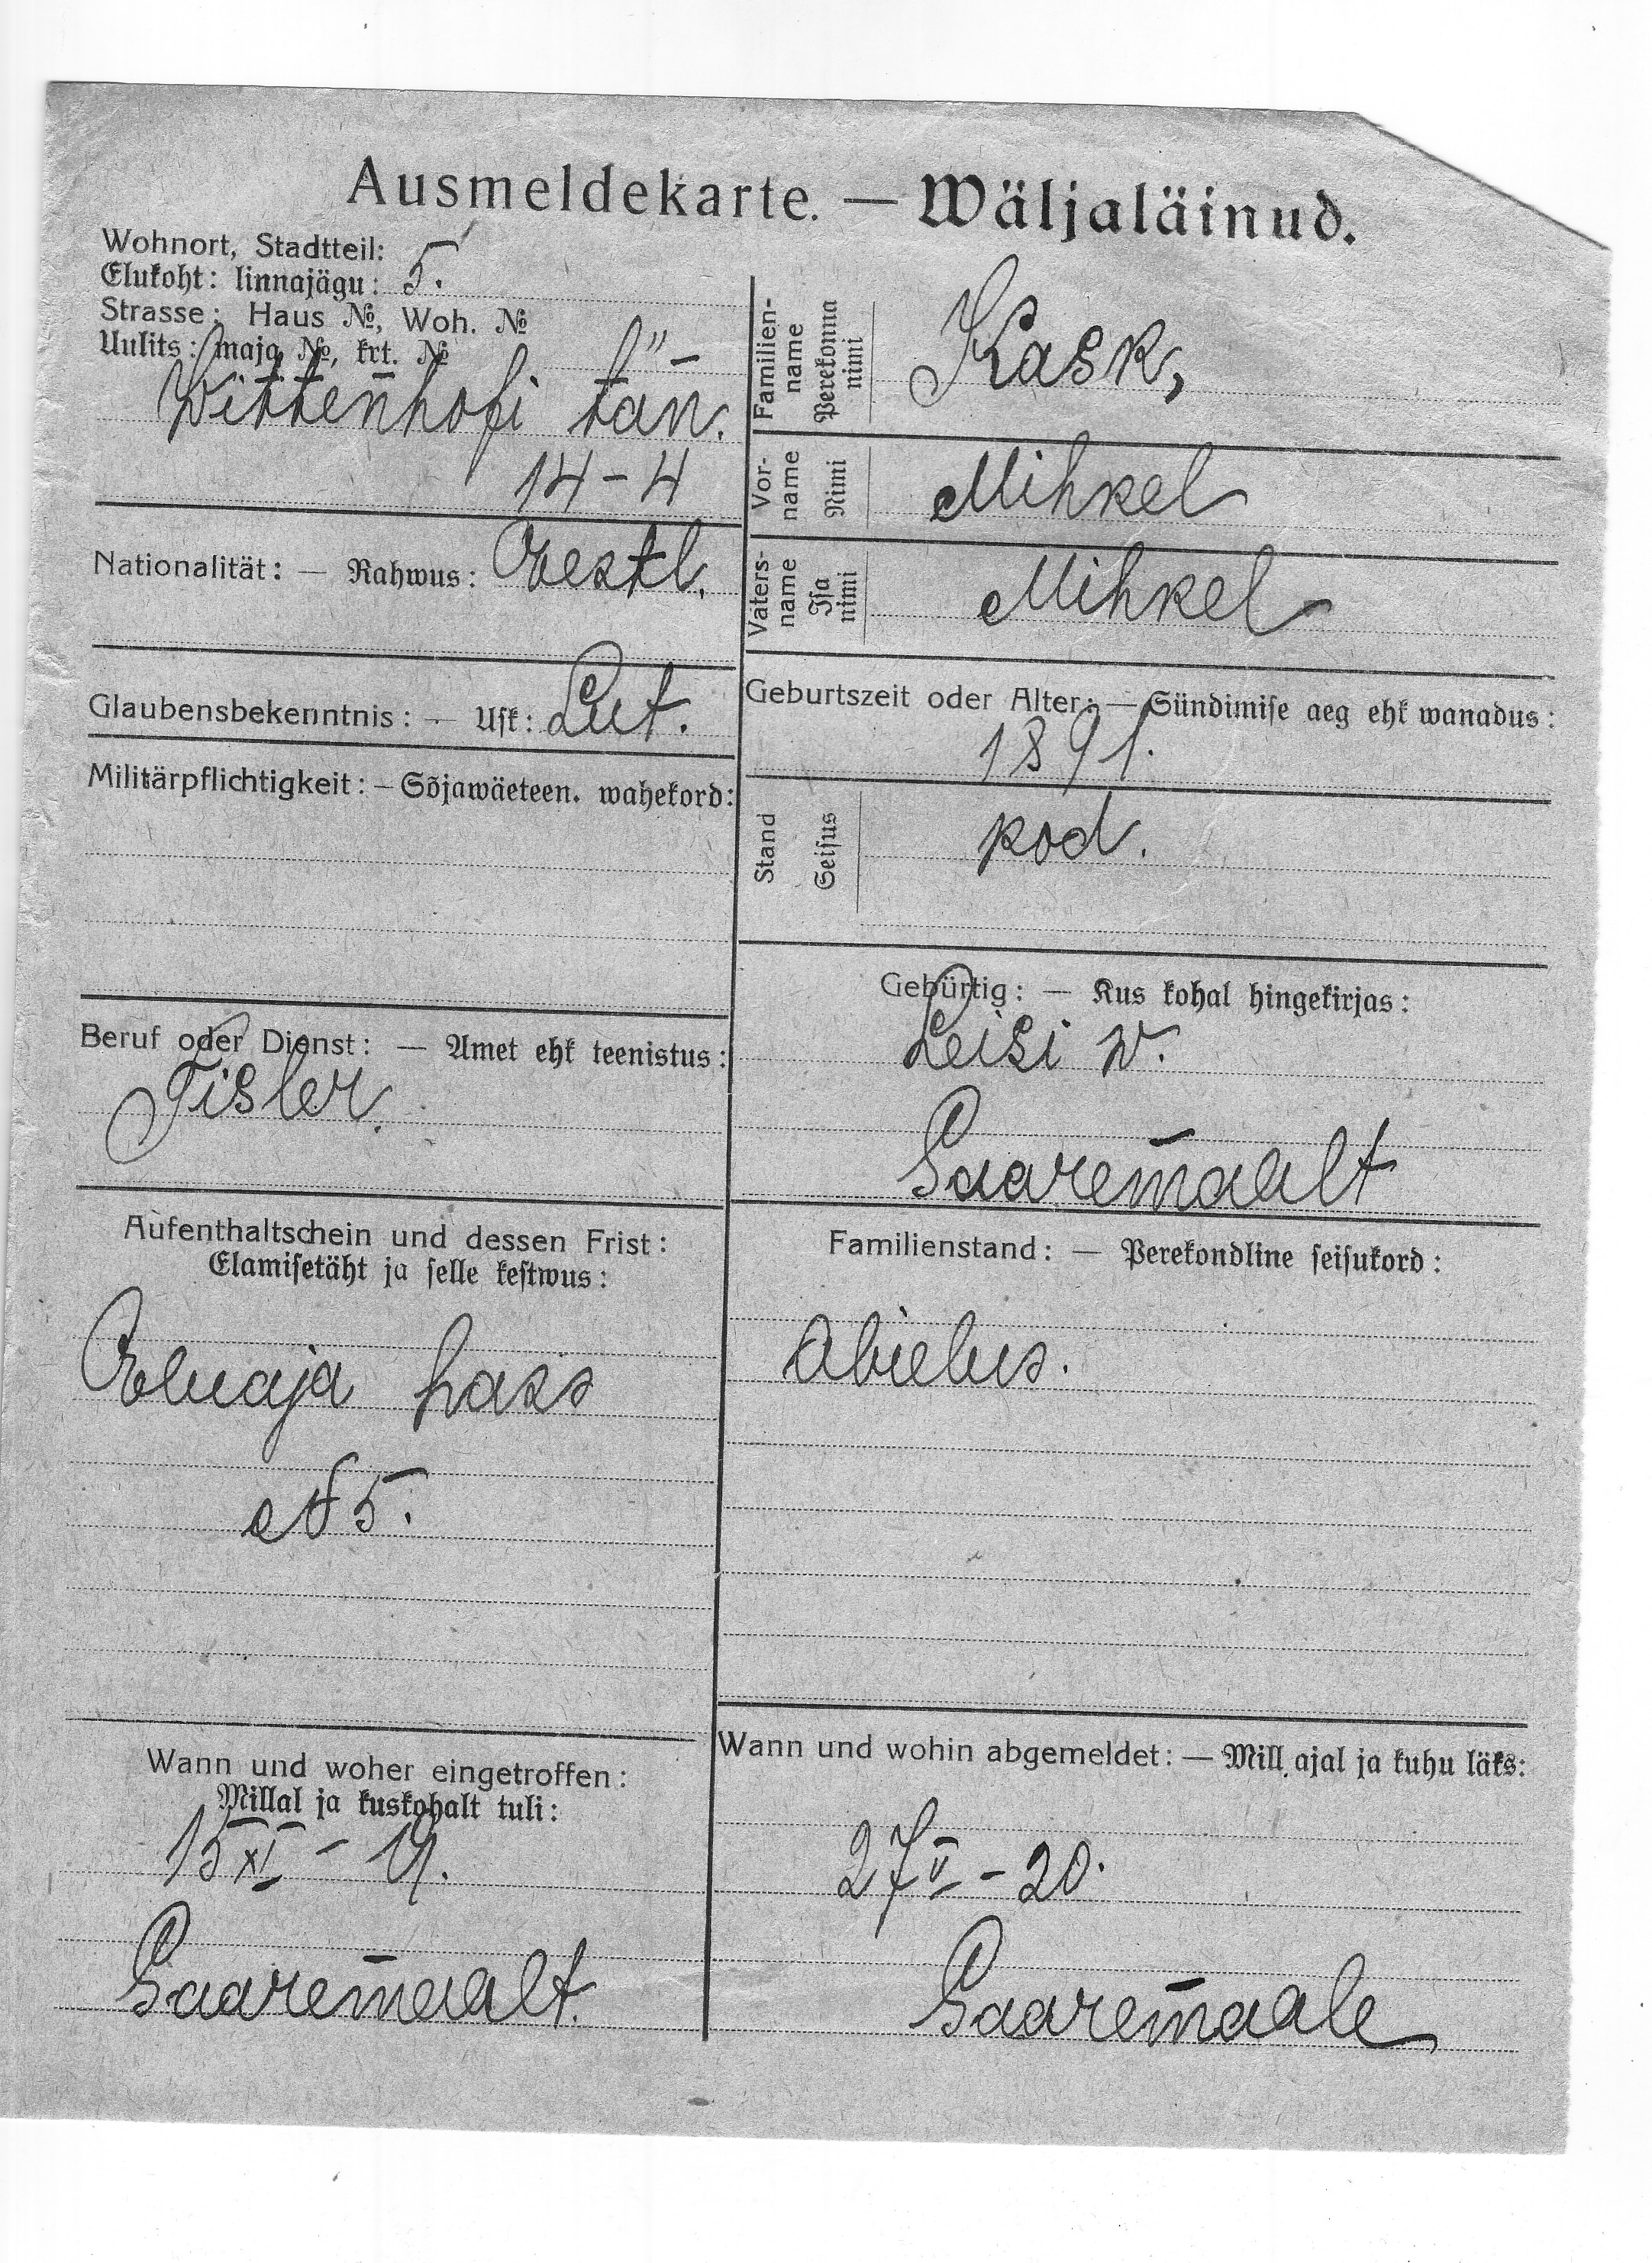 Ausmeldekarte. — Wäljaläinud.
Wohnort, Stadtteil:
Elukoht: linnajägu: 5.
Strasse: Haus №, Woh. №
Uulits: maja №, krt. №
Wittenhofi tän.
14-4
Nationalität: — Rahwus: Eestl.
Glaubensbekenntnis: — Usk: Lut.
Militärpflichtigkeit: — Sõjawäeteen. wahekord:
Beruf oder Dienst: — Amet ehk teenistus:
Tisler.
Aufenthaltschein und dessen Frist:
Elamisetäht ja selle kestwus:
Eluaja pass
№ 5.
Wann und woher eingetroffen:
Millal ja kuskohalt tuli:
15 XI - 19.
Saaremaalt.
Familien-
name
Perekonna
nimi
Kask,
Vor-
name
Nimi
Mihkel
Vaters-
name
Isa
nimi
Mihkel
Geburtszeit oder Alter: — Sündimise aeg ehk wanadus:
1891.
Stand
Seisus
kod.
Gebürtig: — Kus kohal hingekirjas:
Leisi w.
Saaremaalt
Familienstand: — Perekondline seisukord:
Abielus.
Wann und wohin abgemeldet: — Mill. ajal ja kuhu läks:
27 V - 20.
Saaremaale